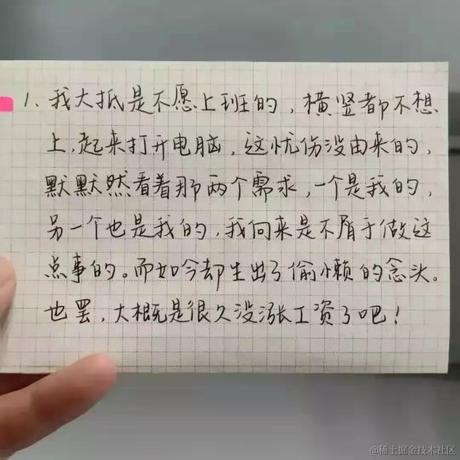 1. 我大抵是不愿上班的，横竖都不想
上，起来打开电脑，这忧伤没由来的，
默默然看着那两个需求，一个是我的，
另一个也是我的，我向来是不屑于做这
点事的。而如今却生出了偷懒的念头。
也罢，大概是很久没涨工资了吧！
@稀土掘金技术社区